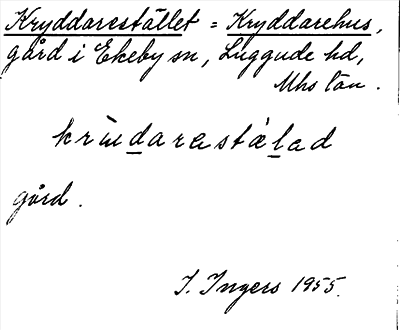 Kryddarestället = Kryddarehus,
gård i Ekeby sn, Luggude hd,
Mhs län.
krùdarastä̀lad
gård.
I. Ingers 1955.